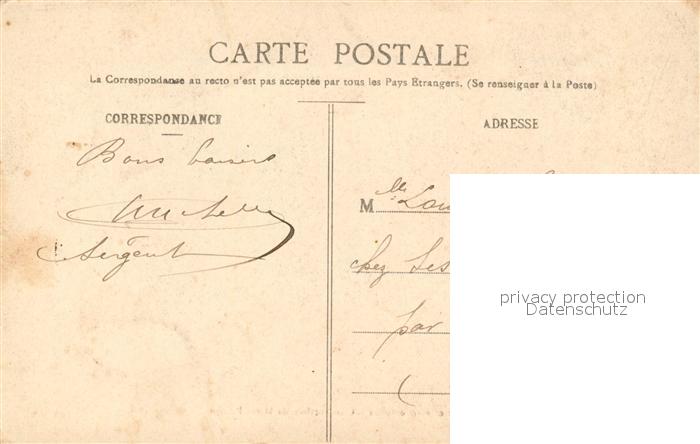 CARTE POSTALE
La Correspondance au recto n'est pas acceptée par tous les Pays Etrangers. (Se renseigner à la Poste)
CORRESPONDANCE
Bons baisers
Sergent
ADRESSE
Mlle Lou
chez Ses
par
privacy protection
Datenschutz